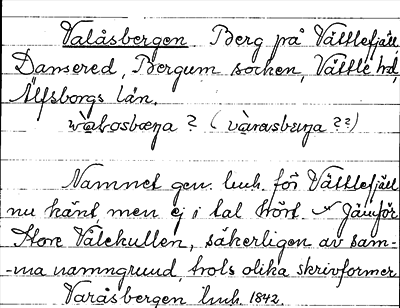 Valåsbergen Berg på Vättlefjäll,
Dansered, Bergum socken, Vättle hd,
Älfsborgs län.
? (
??)
Namnet gen. luuk. för Vättlefjäll
nu känt, men ej i tal hört. Jämför
Store Valekullen, säkerligen av sam-
-ma namngrund, trots olika skrivformer
Varåsbergen luuk. 1842.